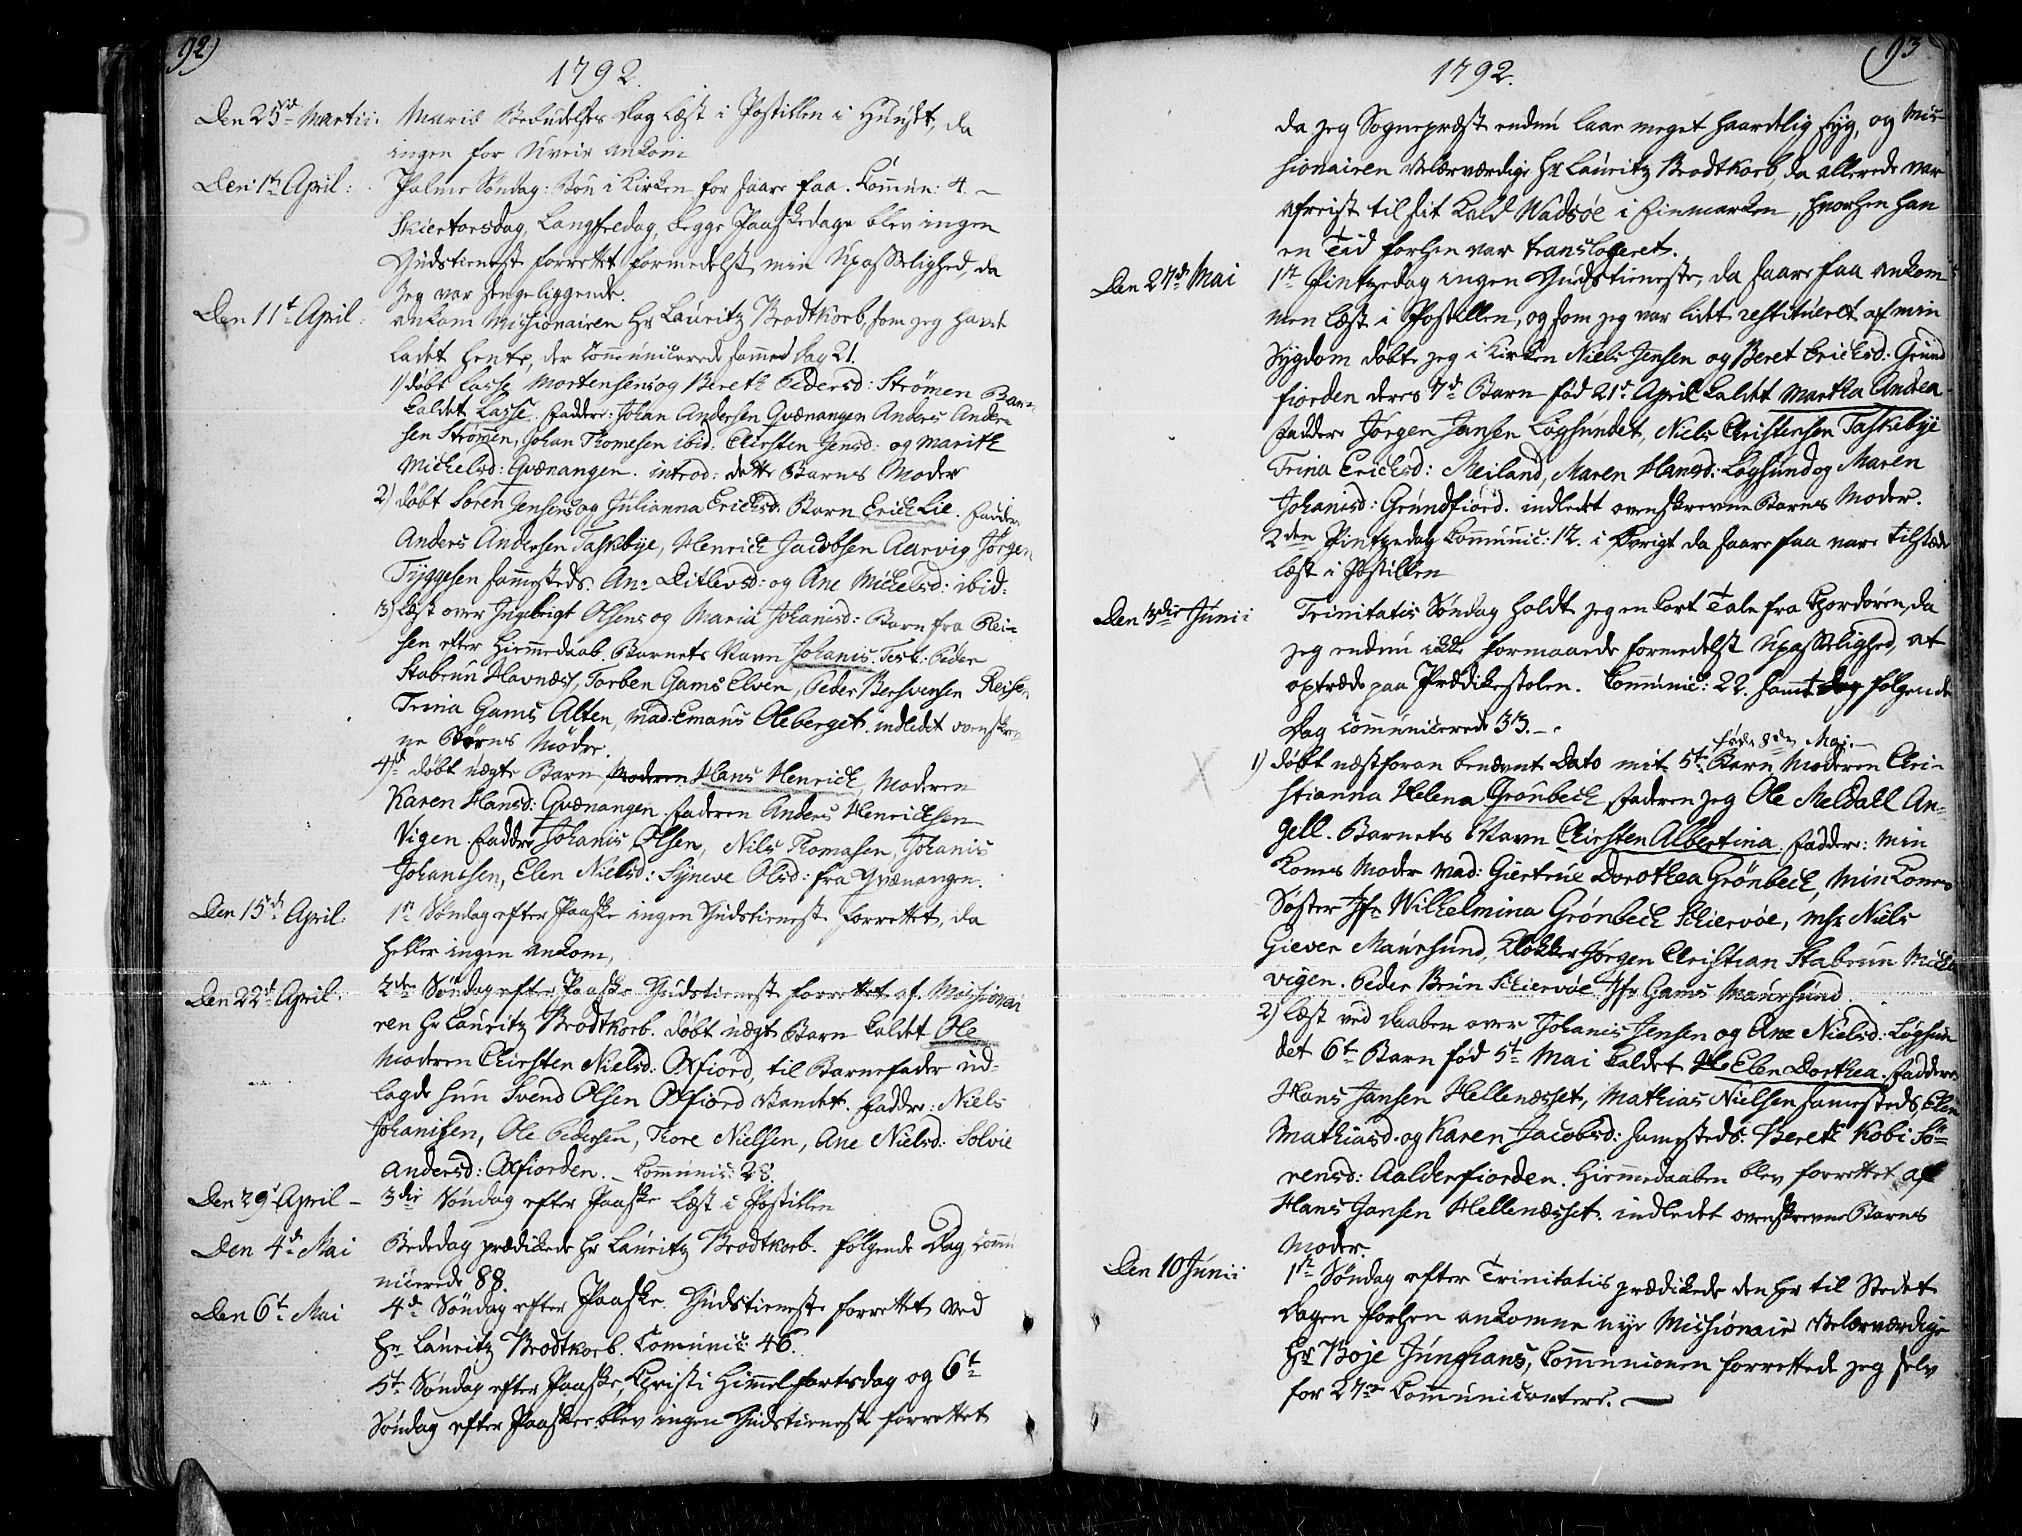 92)
1792.
Den 25de Martii. Mariæ Bebudelses Dag læst i Postillen i Huuset, da
ingen for Uveir ankom
Den 1te April: Palme Søndag: Bøn i Kirken for faare faa. Commun: 4. –
Skiertorsdag, Langfredag, begge Paaskedage blev ingen
Gudstieneste forrettet formedelst min Upasselighed, da
jeg var sengeliggende.
Den 11te April: ankom Missionairen Hr Lauritz Brodtkorb, som jeg havde
ladet hente, der Communicerede samme Dag 21.
1) døbt Lasse Mortensens og Bereth Pedersd: Strømen Barn
kaldet Lasse. Faddere: Johan Andersen Qvænangen Anders Ander-
sen Strømen, Johan Thomesen ibid. Chirsten Jensd: og Marith
Michelsd: Qvænangen. introd: dette Barns Moder
2) døbt Søren Jensens og Julianna Erichsd: Barn Erich Lie. Faddere
Anders Andersen Taskebye, Henrich Jacobsen Aarvig, Jørgen
Tyggesen sammesteds. An: Ditlevsd: og Ane Michelsd: ibid:
3) læst over Ingebrigt Olsens og Maria Johanisd: Barn fra Rei-
sen efter Hiemmedaab. Barnets Navn Johanis. Test: Peder
Stabrun Havnæs, Torben Gams Elven, Peder Bersvensen Reisen
Trina Gams Alten, Mad: Emaus Oleberget. indledet ovenskrev-
ne Børns Mødre.
4de døbt uægte Barn, Moderen Hans Henrich, Moderen
Karen Hansd: Qvænangen. Faderen Anders Henrichsen
Vigen. Faddre Johanis Olsen, Nils Thomasen, Johanis
Johansen, Elen Nielsd: Syneve Olsd: fra Qvænangen.
Den 15de April: 1te Søndag efter Paaske ingen Gudstieneste forrettet, da
heller ingen ankom,
Den 22de April: 2den Søndag efter Paaske Gudstieneste forrettet af Missionai
ren Hr Lauritz Brodtkorb. døbt uægt Barn kaldet Ole
Moderen Chirsten Nielsd: Oxfiord, til Barnefader ud-
lagde hun Svend Olsen Oxfiord Bandet. Faddre: Niels
Johanisen, Ole Pedersen, Thore Nielsen, Ane Nielsd: Solvie
Andersd: Oxfiorden. – Communic: 28.
Den 29d April – 3die Søndag efter Paaske læst i Postillen
Den 4de Mai Bededag prædikede Hr Lauritz Brodtkorb. følgende Dag Commu
nicerede 88.
Den 6te Mai 4de Søndag efter Paaske. Gudstieneste forrettet ved
Hr Lauritz Brodtkorb. Communic: 46.
5te Søndag efter Paaske, Christi Himmelfartsdag og 6te
Søndag efter Paaske blev ingen Gudstieneste forrettet
93
1792.
da jeg Sognepræst endnu laae meget haardelig syg, og Mis-
sionairen Velærværdige Hr Lauritz Brodtkorb, da allerede var
afreist til sit Kald Wadsøe i Finmarken, hvorhen han
en Tid forhen var transloceret.
Den 27de Mai 1te Pintzedag ingen Gudstieneste, da faare faa ankom
men læst i Postillen, og som jeg var lidet restitueret af min
Sygdom døbte jeg i Kirken Niels Jensen og Beret Erichsd: Grund
fiorden deres 7de Barn fød 21de April kaldet Martha Andrea
Faddere Jørgen Jansen Løgsundet, Niels Christensen Taskebye
Trina Erichsd: Meiland, Maren Hansd: Løgsund og Maren
Johanisd: Grundfiord. indledet ovenskrevne Barns Moder.
2den Pintzedag Communic: 12. i Øvrigt da faare faa vare tilstæde
læst i Postillen
Den 3die Junii Trinitatis Søndag holdt jeg en kort Tale fra Chordøren, da
jeg endnu icke formaaede formedelst Upasselighed, at
optræde paa Prædikestolen. Communic: 22. samt dag følgende
Dag Communicerede 33. –
fødd 8de Mai. –
1) døbt næstforan benævnt Dato mit 5te Barn, Moderen Chri-
stianna Helena Grønbech Faderen jeg Ole Meldall An-
gell. Barnets Navn Chirsten Albertina. Faddere: Min
Kones Moder Mad: Giertrue Dorothea Grønbech, Min Kones
Søster Jfr Wilhelmina Grønbech Schiervøe, Mhr Niels
Giever Maursund, Klokker Jørgen Christian Stabrun Michl
vigen. Peder Brun Schiervøe Jfr Gams Maursund.
2) læst ved Daaben over Johanis Jensen og Ane Nielsd: Løgsun
det 6te Barn fød 5te Mai kaldet Elen Dorthea. Faddere
Hans Jansen Hellenæsset, Mathias Nielsen samesteds, Elen
Mathiasd. og Karen Jacobsd: samesteds. Bereth Kobi Sø-
rensd: Aalderfiorden. Hiemmedaaben blev forrettet af
Hans Jansen Hellenæsset. indledet ovenskrevne Barns
Moder.
Den 10 Junii 1te Søndag efter Trinitatis prædikede den her til Stedet
Dagen forhen ankomne nye Missionair Velærværdige
Hr Boje Junghans, Communionen forrettede jeg selv
for 27ve Communicantere. –